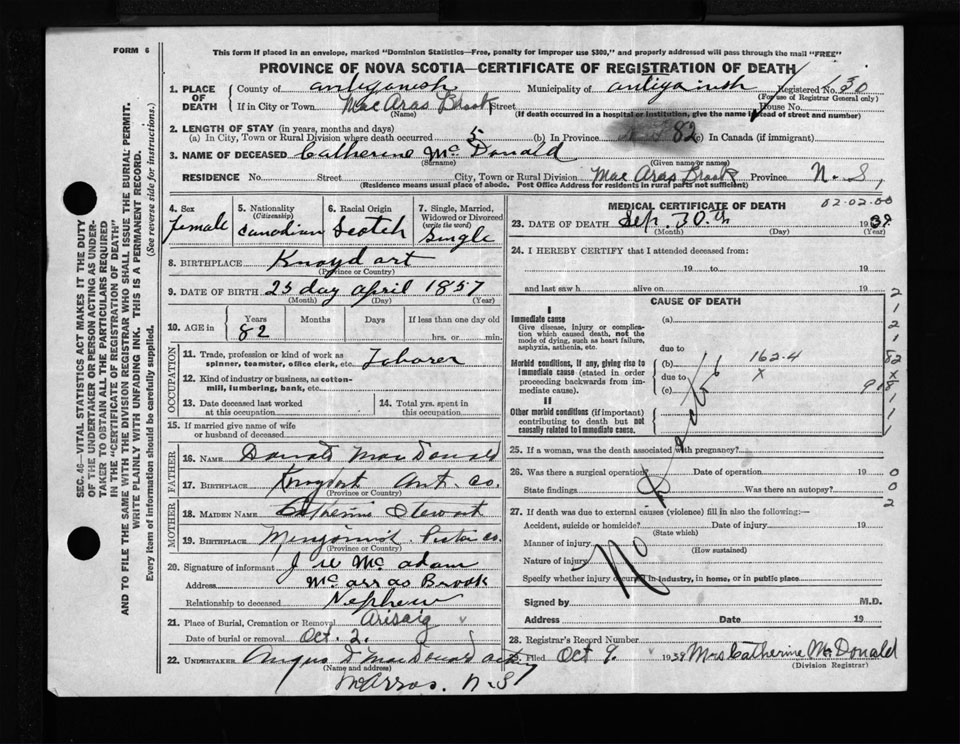 FORM 6
This form if placed in an envelope, marked "Dominion Statistics—Free, penalty for improper use $300," and properly addressed will pass through the mail "FREE"
PROVINCE OF NOVA SCOTIA—CERTIFICATE OF REGISTRATION OF DEATH
1. PLACE OF DEATH
County of antigonish Municipality of antigonish Registered No. 30
(For use of Registrar General only)
If in City or Town Mac Aras Brook Street House No.
(Name) (If death occurred in a hospital or institution, give the name instead of street and number)
2. LENGTH OF STAY (in years, months and days)
(a) In City, Town or Rural Division where death occurred 5 (b) In Province 82 (c) In Canada (if immigrant)
3. NAME OF DECEASED Catherine Mc Donald
(Surname) (Given name or names)
RESIDENCE No. Street City, Town or Rural Division Mac Aras Brook Province N.S,
(Residence means usual place of abode. Post Office Address for residents in rural parts not sufficient)
4. Sex
female
5. Nationality
(Citizenship)
Canadian
6. Racial Origin
Scotch
7. Single, Married, Widowed or Divorced
(write the word)
Single
8. BIRTHPLACE Knoydart
(Province or Country)
9. DATE OF BIRTH 25 day April 1857
(Month) (Day) (Year)
10. AGE in
Years Months Days If less than one day old
82 hrs. or min.
OCCUPATION
11. Trade, profession or kind of work as spinner, teamster, office clerk, etc.
12. Kind of industry or business, as cotton-mill, lumbering, bank, etc.
13. Date deceased last worked at this occupation
14. Total yrs. spent in this occupation
15. If married give name of wife or husband of deceased
FATHER
16. NAME Donald MacDonald
17. BIRTHPLACE Knoydart Ant. Co.
(Province or Country)
MOTHER
18. MAIDEN NAME Catherine Stewart
19. BIRTHPLACE Pictou Co.
(Province or Country)
20. Signature of informant Mc adam
Address Mc arras Brook
Relationship to deceased Nephew
21. Place of Burial, Cremation or Removal Arisaig
Date of burial or removal Oct. 2.
22. UNDERTAKER Angus D MacDonald
(Name and address)
McArras. N.S
MEDICAL CERTIFICATE OF DEATH
02-02-00
23. DATE OF DEATH Sep. 30 th 1939
(Month) (Day) (Year)
24. I HEREBY CERTIFY that I attended deceased from:
19 to 19
and last saw h alive on 19
CAUSE OF DEATH
I
Immediate cause
Give disease, injury or complication which caused death, not the mode of dying, such as heart failure, asphyxia, asthenia, etc.
(a)
due to
Morbid conditions, if any, giving rise to immediate cause (stated in order proceeding backwards from immediate cause).
(b) 162-4
due to x
(c) 918
II
Other morbid conditions (if important) contributing to death but not causally related to immediate cause.
2
1
2
1
82
x
1
1
25. If a woman, was the death associated with pregnancy?
26. Was there a surgical operation? Date of operation 19
State findings Was there an autopsy?
0
0
2
27. If death was due to external causes (violence) fill in also the following:—
Accident, suicide or homicide? Date of injury 19
(State which)
Manner of injury
(How sustained)
Nature of injury
Specify whether injury occurred in industry, in home, or in public place
No
Signed by M.D.
Address Date 19
28. Registrar's Record Number
Filed Oct 9. 1939 Mrs Catherine McDonald
(Division Registrar)
SEC. 46—VITAL STATISTICS ACT MAKES IT THE DUTY OF THE UNDERTAKER OR PERSON ACTING AS UNDERTAKER TO OBTAIN ALL THE PARTICULARS REQUIRED IN THE "CERTIFICATE OF REGISTRATION OF DEATH" AND TO FILE THE SAME WITH THE DIVISION REGISTRAR WHO SHALL ISSUE THE BURIAL PERMIT.
WRITE PLAINLY WITH UNFADING INK. THIS IS A PERMANENT RECORD.
Every item of information should be carefully supplied. (See reverse side for instructions.)